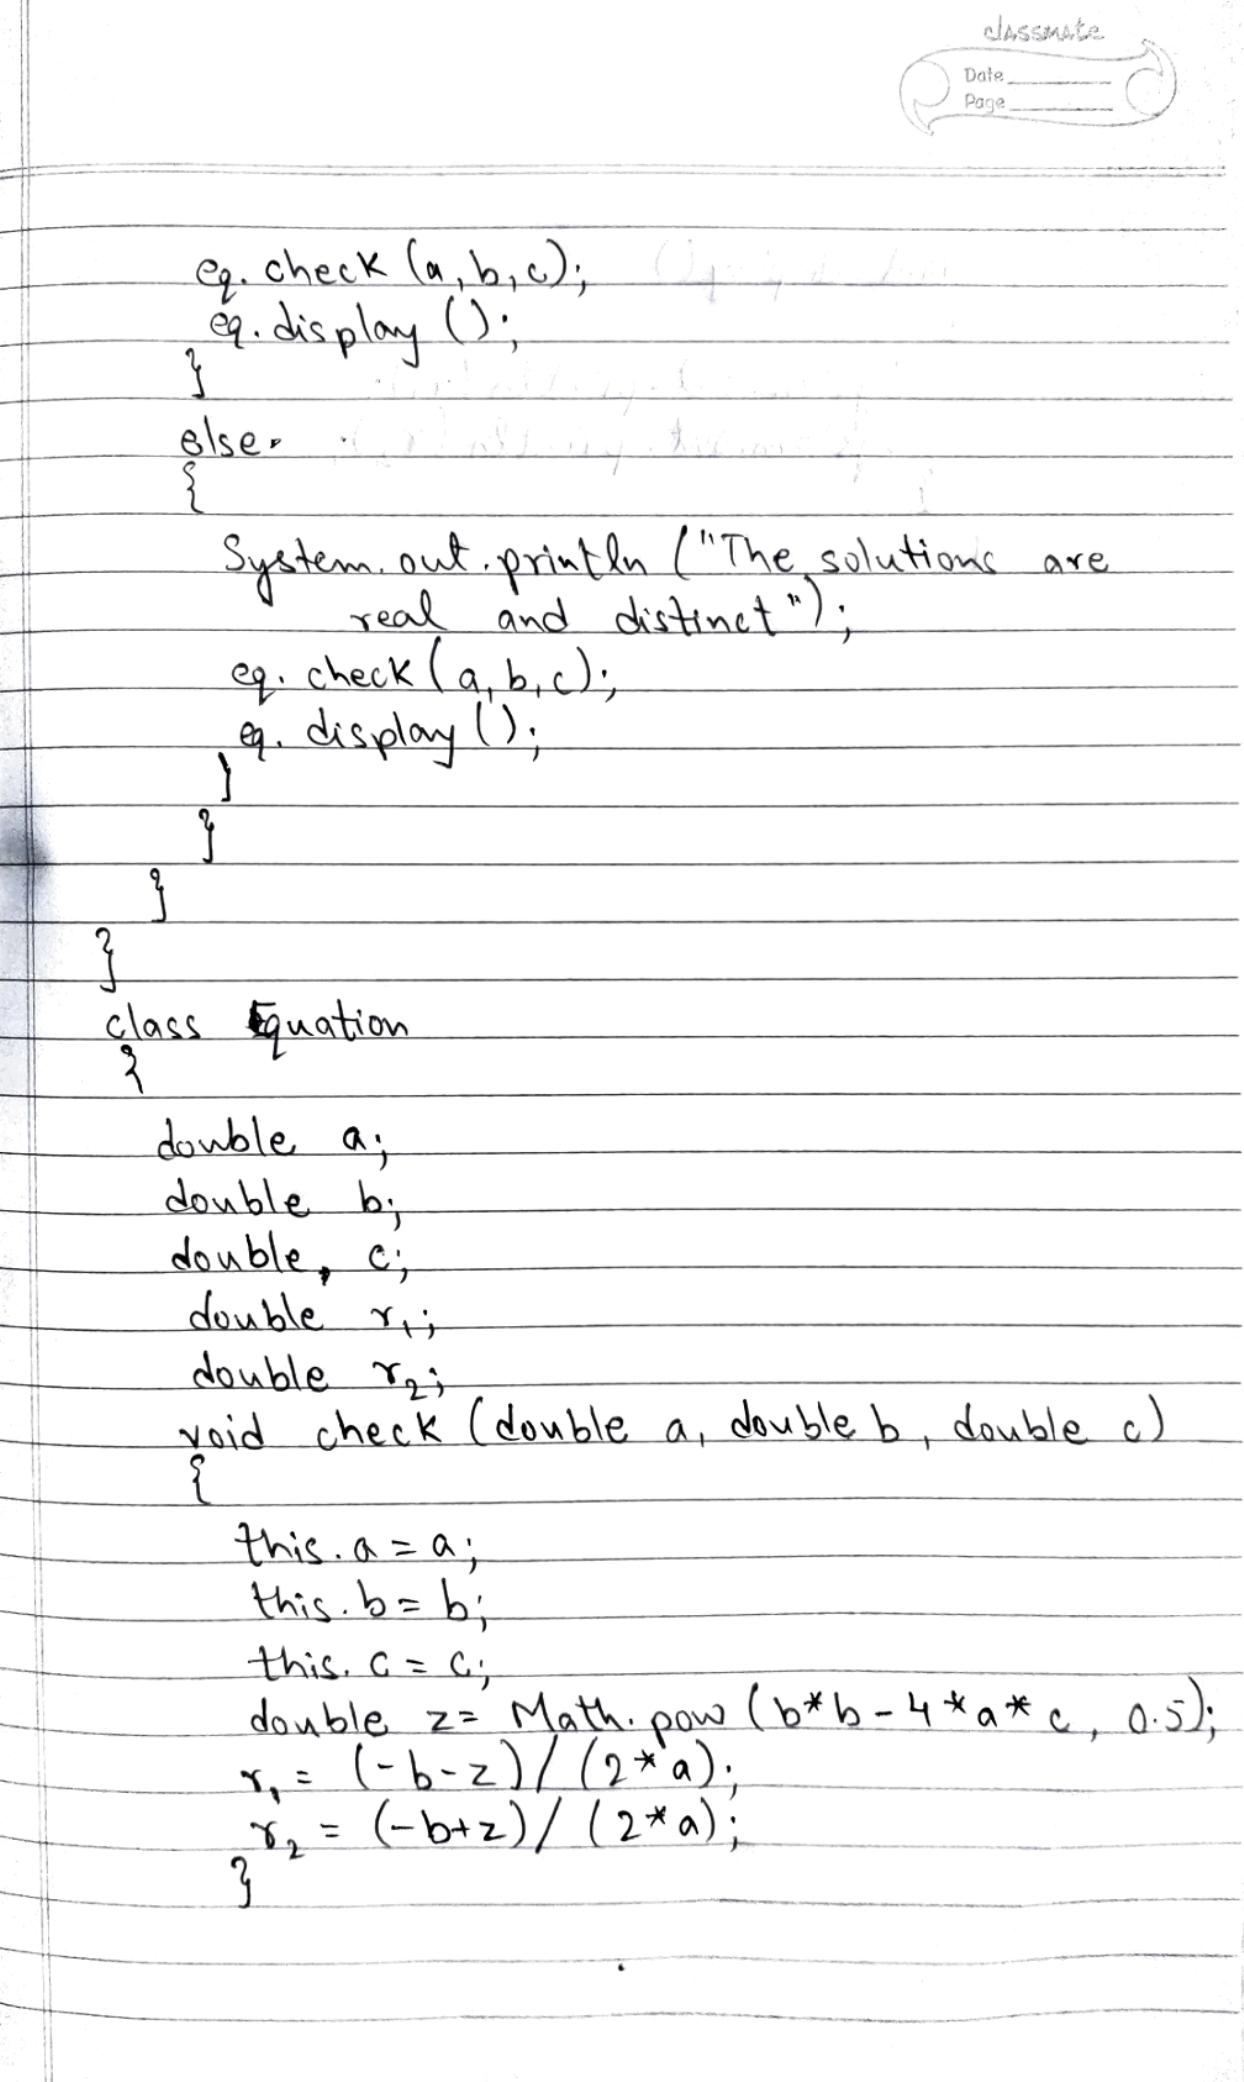 classmate
Date
Page
eq. check (a, b, c);
eq. display ();
}
else
{
System. out. println ("The solutions are
real and distinct");
eq. check (a, b, c);
eq. display ();
}
}
}
}
class Equation
{
double a;
double b;
double c;
double r1;
double r2;
void check (double a, double b, double c)
{
this. a = a;
this. b = b;
this. c = c;
double z = Math. pow (b*b - 4*a*c, 0.5);
r1 = (-b-z) / (2*a);
r2 = (-b+z) / (2*a);
}